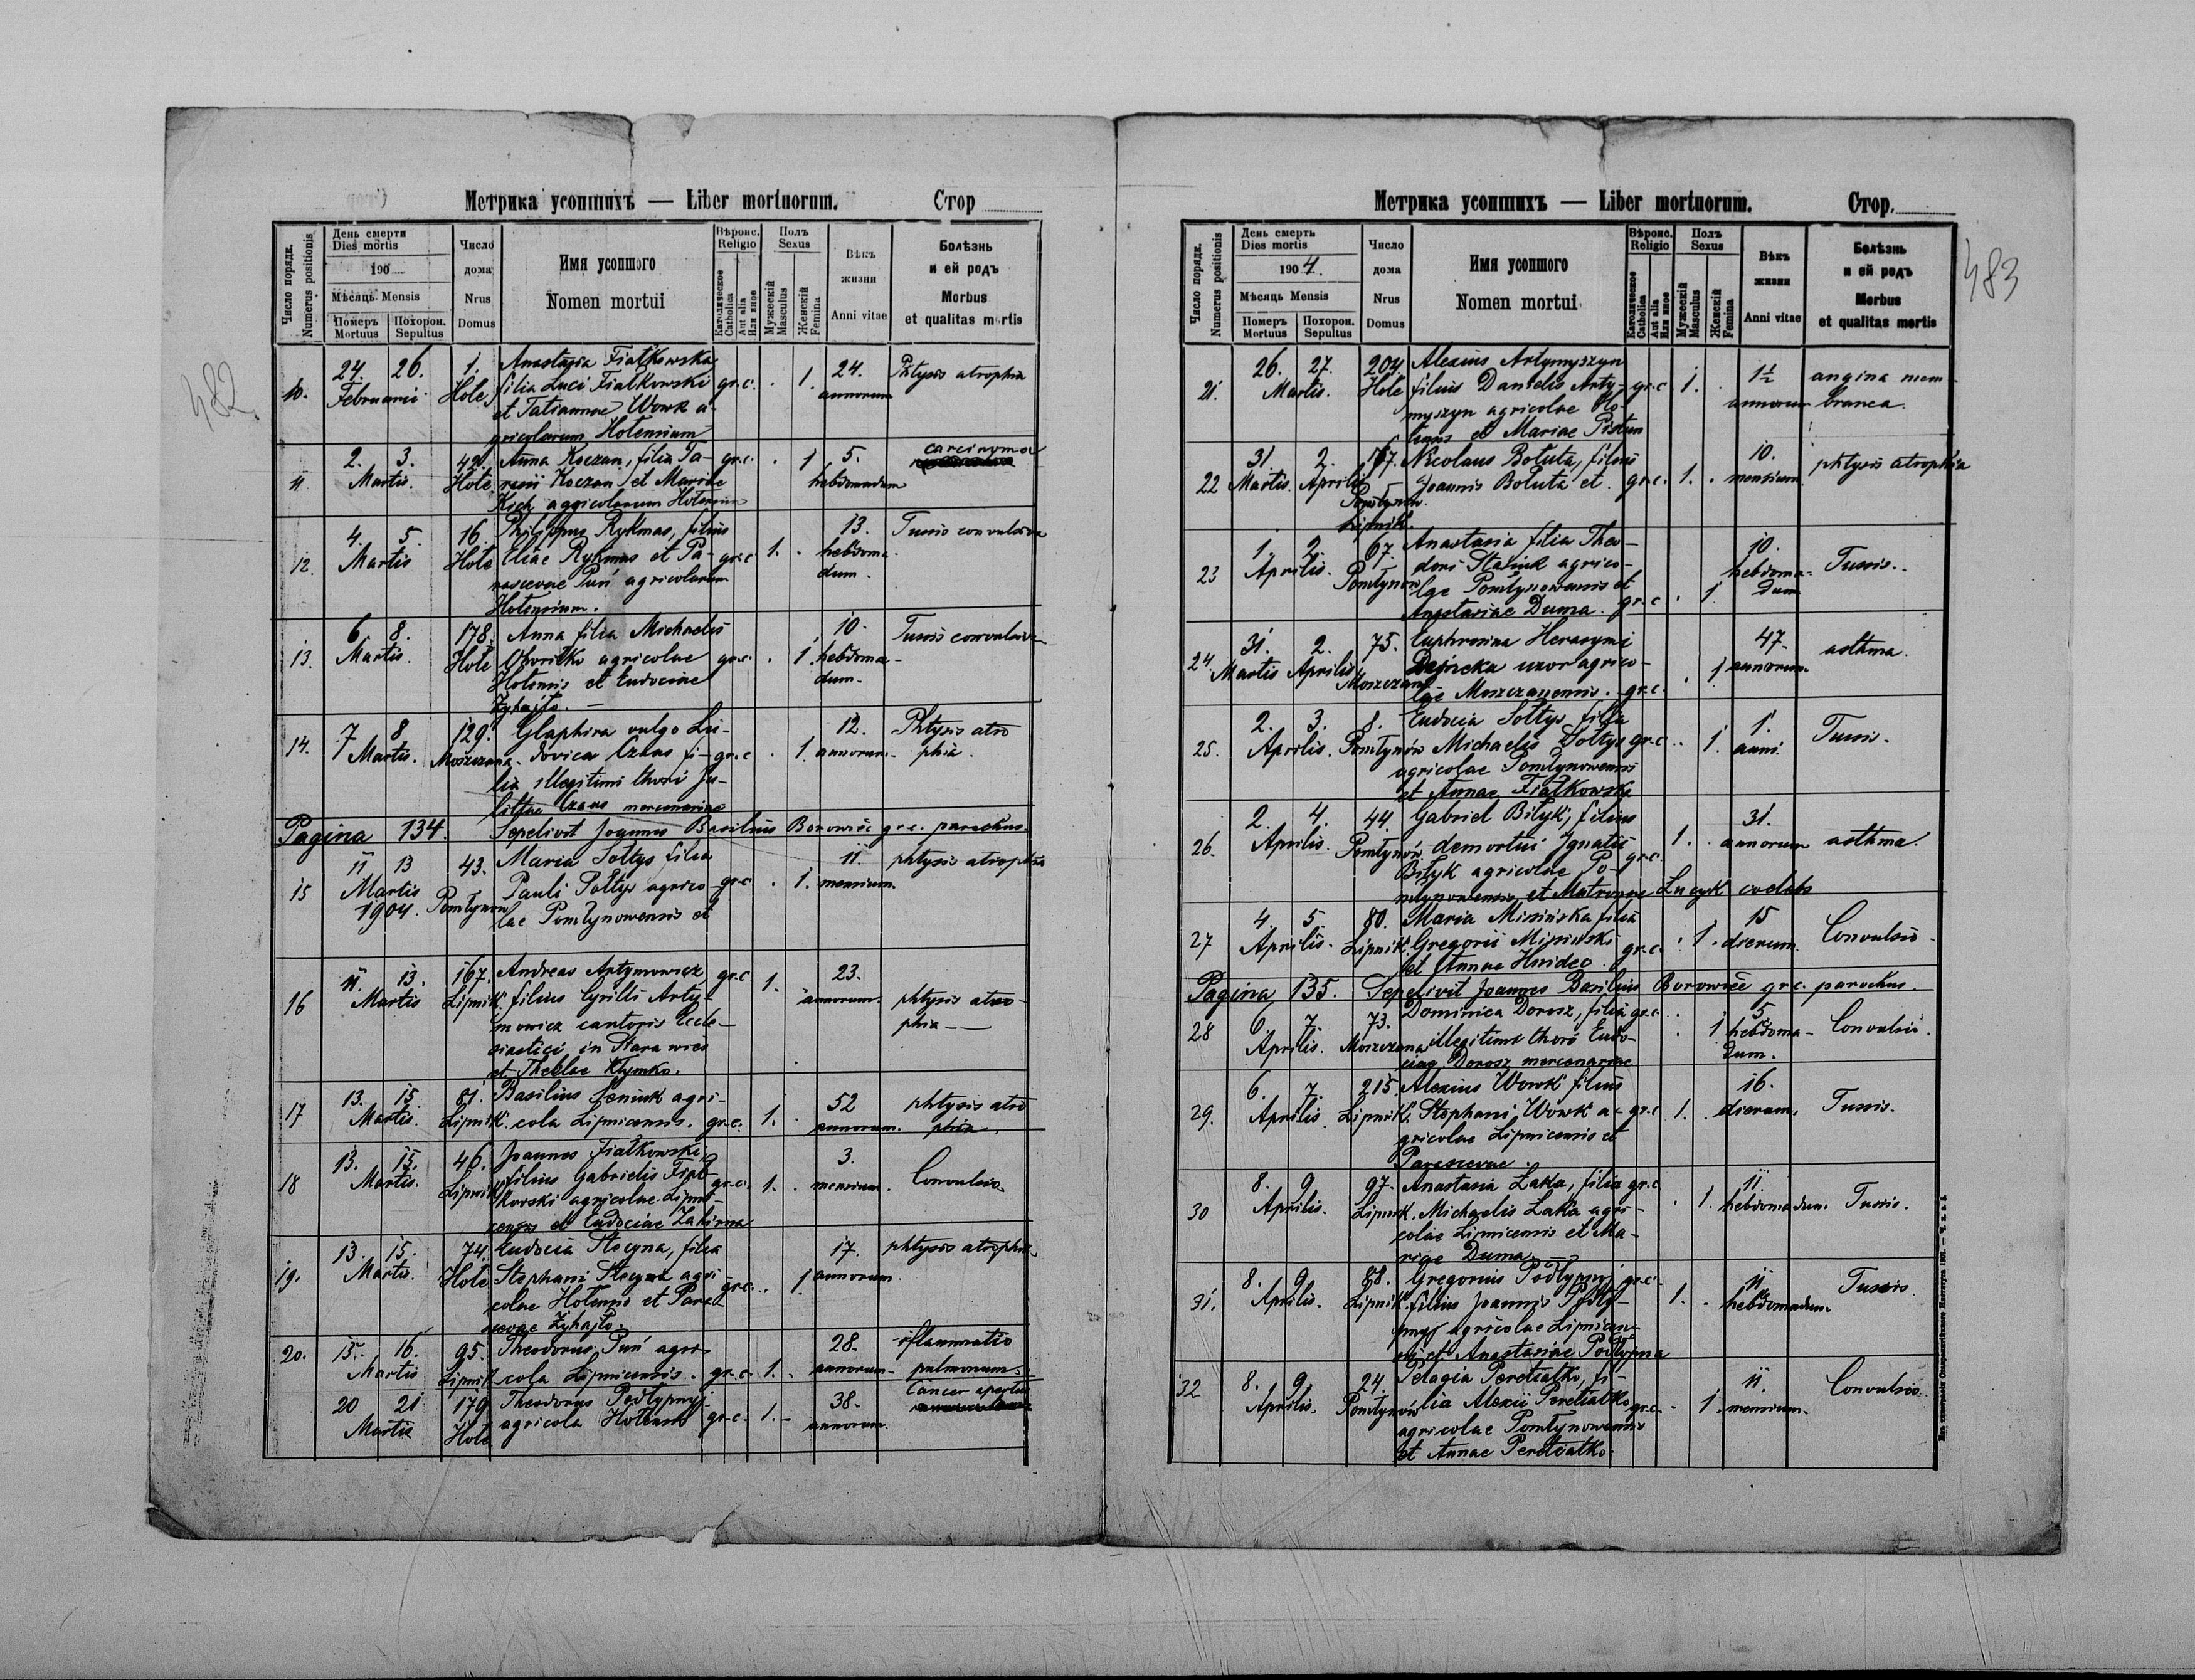 482.
Метрика усопшихъ — Liber mortuorum. Стор
Число порядк. Numerus positionis
День смерти Dies mortis
190
Мѣсяць Mensis
Померъ Mortuus
Похорон. Sepultus
Число дома Nrus Domus
Имя усопшого Nomen mortui
Вѣроис. Religio
Католическое Catholica
Aut alia Или иное
Полъ Sexus
Мужескій Masculus
Женскій Femina
Вѣкъ жизни Anni vitae
Болѣзнь и ей родъ Morbus et qualitas mortis
10. 24. 26. Februarii 1. Hole Anastasia Fiałkowska gr.c. . 1. 24. annorum Phtysis atrophia
filia Luci Fiałkowski
et Tatiannae Wowk a-
gricolarum Holensium
11 2. 3. Martis. 42. Hole Anna Koczan, filia Pa- gr.c. . 1 5. hebdomadum carcinoma
Koczan et Mariae
Kich agricolarum Holensium
12. 4. 5. Martis 16. Hole Philippus Rykmas, filius gr.c. 1. . 13. hebdoma- dum. Tussis convulsiva
Eliae Rykmas et Pa-
rascevae Puń agricolarum
Holensium.
13. 6 8. Martis. 178. Hole Anna filia Michaelis gr.c. . 1. 10. hebdoma- dum. Tussis convulsiva
agricolae
Holensis et Eudociae
Zyhajło. —
14. 7 8 Martis. 129. Moszczana Glaphira vulgo Lu- gr.c . 1. 12. annorum. Phtysis atro phia.
dovica Czaus fi-
lia illegitimi thori Ju-
littae Czaus mercenariae
Pagina 134. Sepelivit Joannes Basilius Borowiec gr.c. parochus.
15 11 13 Martis 1904. 43. Pomłynow Maria Sołtys filia gr.c . 1. 11. mensium. phtysis atrophia
Pauli Sołtys agrico-
lae Pomłynowensis et
16 11. 13. Martis 167. Lipnik. Andreas Artymowicz gr.c 1. 23. annorum. phtysis atro- phia —
filius Cyrilli Arty-
mowicz cantoris Eccle-
siastici in Stara wieś
et Theclae Klymko.
17 13. 15. Martis. 81. Lipnik. Basilius Seniuk agri- gr.c. 1. . 52 annorum. phtysis atro phia.
cola Lipnicensis.
18 13. 15. Martis. 46. Lipnik Joannes Fiałkowski, gr.c. 1. . 3. mensium. Convulsio.
filius Gabrielis Fiał-
kowski agricolae Lipni-
censis et Eudociae
19. 13. 15. Martis. 74. Hole Eudocia Stecyna, filia gr.c. . 1. 17. annorum. phtysis atrophia.
Stephani Stecyna agri-
colae Holensis et Paras-
cevae Zyhajło.
20. 15. 16. Martis 95. Lipnik Theodorus Puń agri- gr.c. 1. . 28. annorum. inflammatio pulmonum.
cola Lipnicensis.
20 21 Martis 179 Hole Theodorus Podłypnyj gr.c. 1. - 38. annorum. Cancer apertus
agricola Holensis
483
Метрика усопшихъ — Liber mortuorum. Стор.
Число порядк. Numerus positionis
День смерть Dies mortis
1904.
Мѣсяць Mensis
Померъ Mortuus
Похорон. Sepultus
Число дома Nrus Domus
Имя усопшого Nomen mortui
Вѣроис. Religio
Католическое Catholica
Aut alia Или иное
Полъ Sexus
Мужескій Masculus
Женскій Femina
Вѣкъ жизни Anni vitae
Болѣзнь и ей родъ Morbus et qualitas mortis
21. 26. 27. Martis. 204 Hole Alexius Artymyszyn gr.c 1. . 1½ annorum angina mem- branea.
filius Danielis Arty-
myszyn agricolae Ho-
lensis et Mariae Pistun
22 31. 2. Martis. Aprilis 167. Pomłynow. Lipnik. Nicolaus Bołuta, filius gr.c. 1. . 10. mensium. phtysis atrophia
Joannis Bołuta et
23 1. 2. Aprilis. 67. Pomłynow Anastasia filia Theo- gr.c . 1 10. hebdoma- dum Tussis.
dori Stasiuk agrico-
lae Pomłynowensis et
Anastasiae Duma.
24. 31. 2. Martis Aprilis 75. Moszczana Euphrosina Herasymi gr.c. . 1 47. annorum. asthma.
uxor agrico-
lae Moszczanensis.
25. 2. 3. Aprilis. 8. Pomłynów Eudocia Sołtys filia gr.c . 1. 1. anni. Tussis.
Michaelis Sołtys
agricolae Pomłynowensis
et Annae Fiałkowska
26. 2. 4. Aprilis. 44. Pomłynów Gabriel Biłyk, filius gr.c. 1. . 31. annorum asthma.
demortui Ignatii
Biłyk agricolae Po-
młynowensis et Matronae Łucyk caelebs
27 4. 5. Aprilis. 80. Lipnik. Maria Misińska filia gr.c. . 1. 15 dierum. Convulsio.
Gregorii Misinski
et Annae Hnidec.
Pagina 135. Sepelivit Joannes Basilius Borowiec gr.c. parochus.
28 6. 7. Aprilis. 73. Moszczana Dominica Dorosz, filia gr.c. . 1 5. hebdoma- dum. Convulsio.
illegitimi thori Eudo-
ciae Dorosz mercenariae
29. 6. 7. Aprilis. 215. Lipnik. Alexius Wowk filius gr.c 1. . 16. dierum. Tussis.
Stephani Wowk a-
gricolae Lipnicensis et
Parascevae.
30 8. 9. Aprilis. 97. Lipnik. Anastasia Łaka, filia gr.c. . 1. 11. hebdomadum. Tussis.
Michaelis Łaka agri-
colae Lipnicensis et Ma-
riae Duma
31. 8. 9. Aprilis. 88. Lipnik. Gregorius Podłypnyj gr.c. 1. . 11. hebdomadum Tussis.
filius Joannis Podły-
pnyj agricolae Lipnicen-
sis et Anastasiae Podłypna
32 8. 9. Aprilis. 24. Pomłynów Pelagia Peretiatko, fi- gr.c. . 1. 11. mensium. Convulsio.
lia Alexii Peretiatko
agricolae Pomłynowensis
et Annae Peretiatko.